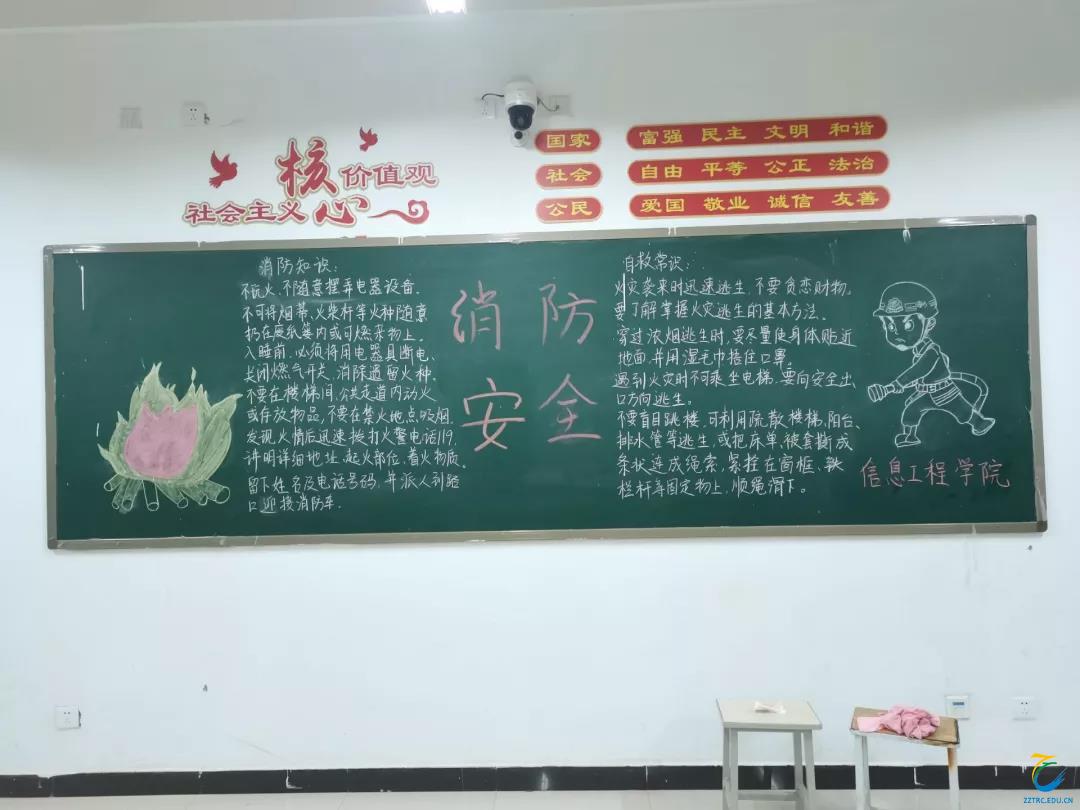 核
价值观
社会主义
心
国家
富强 民主 文明 和谐
社会
自由 平等 公正 法治
公民
爱国 敬业 诚信 友善
消防知识:
不玩火、不随意摆弄电器设备。
不可将烟蒂、火柴杆等火种随意
扔在废纸篓内或可燃杂物上。
入睡前,必须将用电器具断电、
关闭燃气开关,消除遗留火种。
不要在楼梯间、公共走道内动火
或存放物品,不要在禁火地点吸烟。
发现火情后迅速拨打火警电话119,
讲明详细地址、起火部位、着火物质。
留下姓名及电话号码,并派人到路
口迎接消防车.
消防
安全
自救常识:
火灾袭来时迅速逃生,不要贪恋财物。
要了解掌握火灾逃生的基本方法。
穿过浓烟逃生时,要尽量使身体贴近
地面,并用湿毛巾捂住口鼻。
遇到火灾时不可乘坐电梯,要向安全出
口方向逃生。
不要盲目跳楼,可利用疏散楼梯、阳台、
排水管等逃生,或把床单、被套撕成
条状连成绳索,紧拴在窗框、铁
栏杆等固定物上,顺绳滑下。
信息工程学院
ZZTRC.EDU.CN